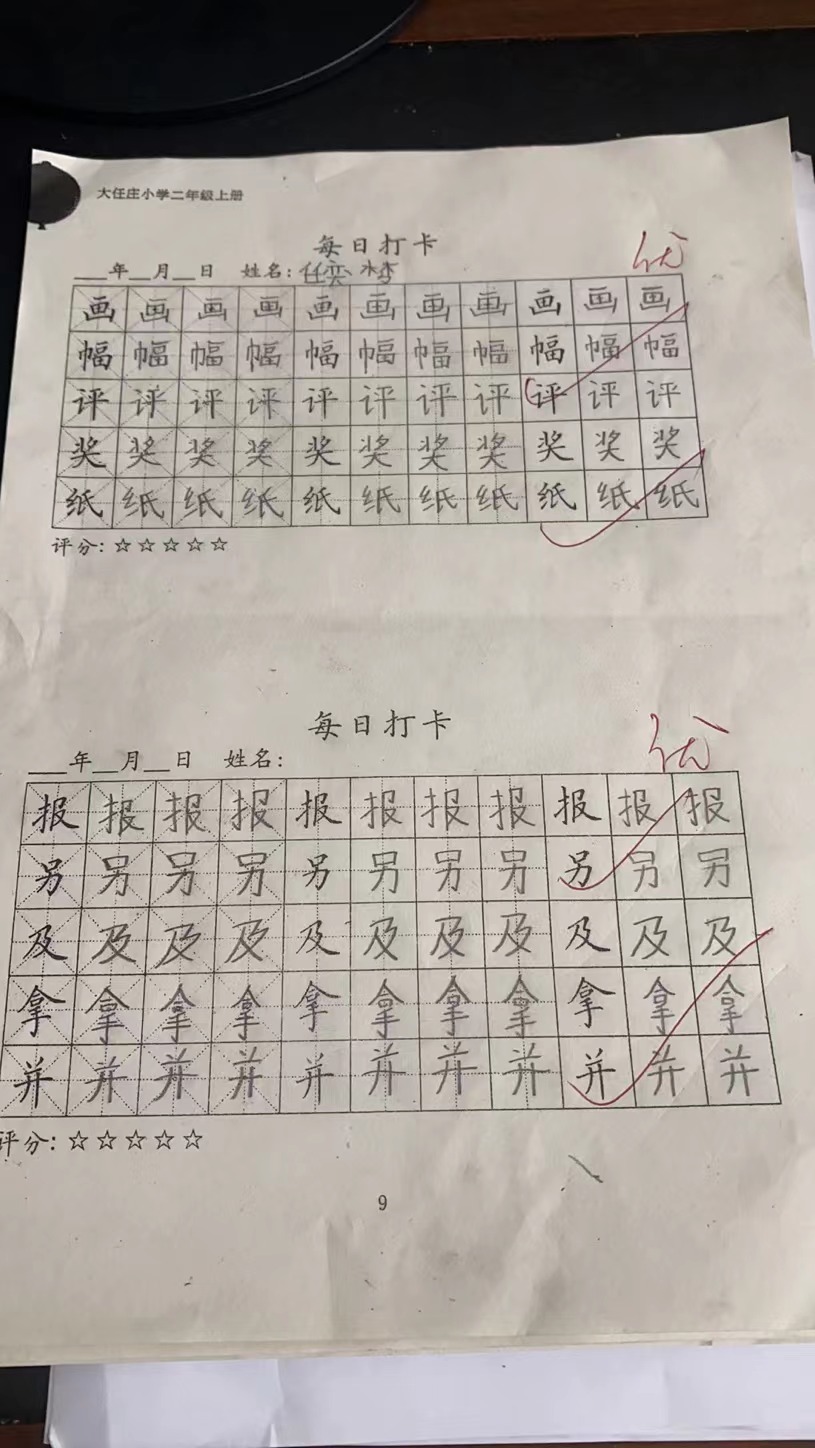 大任庄小学二年级上册
每日打卡
优
___年__月__日 姓名:任奕梦
画画画画画画画画画画画
幅幅幅幅幅幅幅幅幅幅幅
评评评评评评评评评评评
奖奖奖奖奖奖奖奖奖奖奖
纸纸纸纸纸纸纸纸纸纸纸
评分:☆☆☆☆☆
每日打卡
优
___年__月__日 姓名:
报报报报报报报报报报报
另另另另另另另另另另另
及及及及及及及及及及及
拿拿拿拿拿拿拿拿拿拿拿
并并并并并并并并并并并
评分:☆☆☆☆☆
9